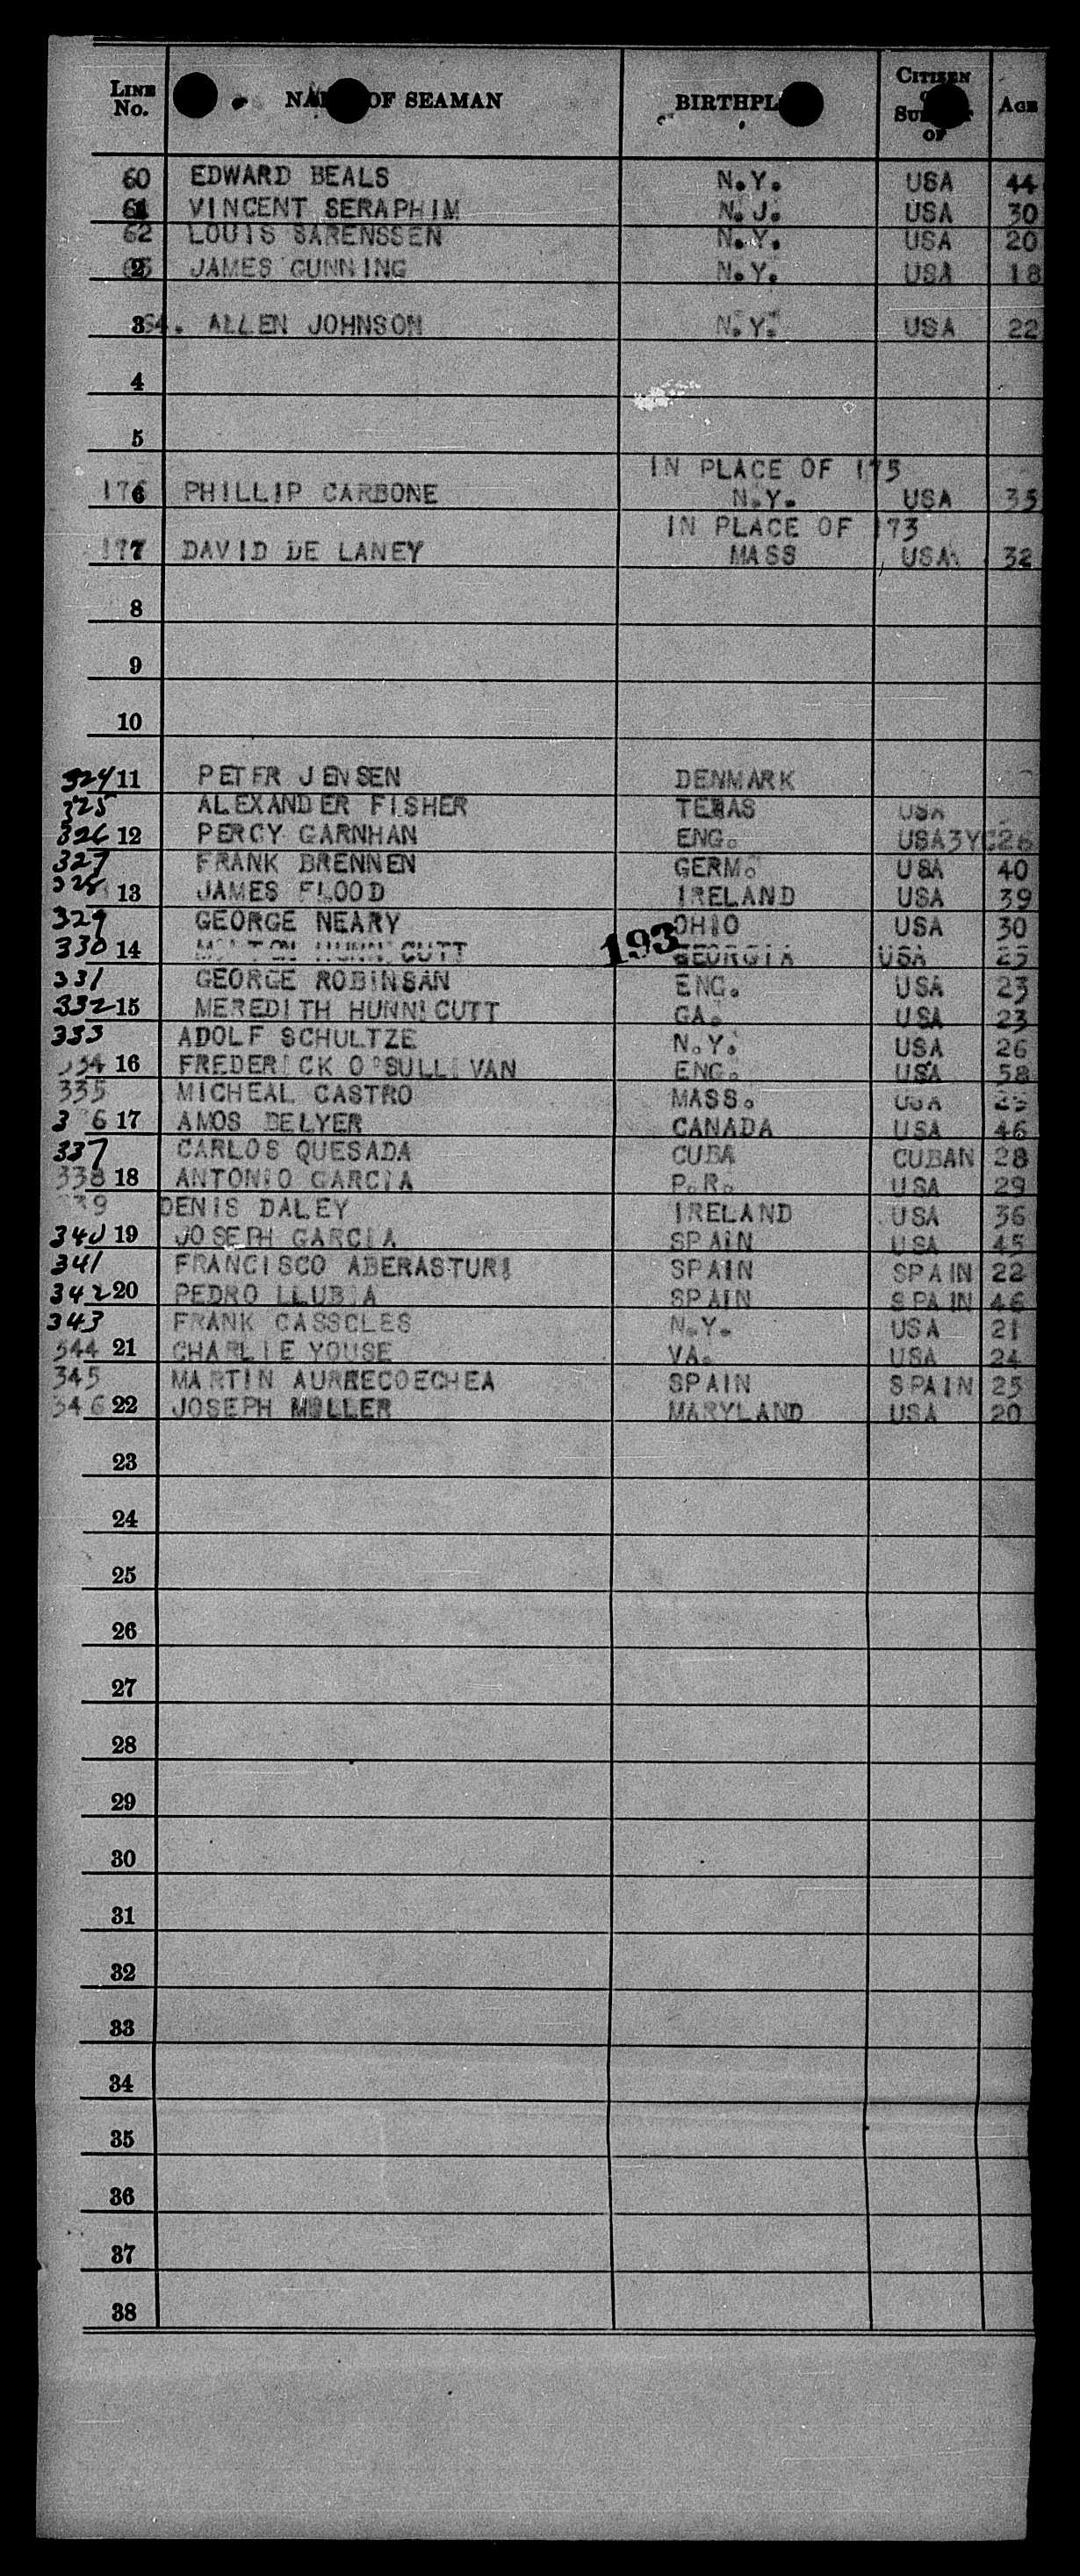 LINE No. NAME OF SEAMAN BIRTHPL CITIZEN SUBJECT OF AGE
60 EDWARD BEALS N.Y. USA 44
61 VINCENT SERAPHIM N.J. USA 30
62 LOUIS SARENSSEN N.Y. USA 20
2 JAMES GUNNING N.Y. USA 18
3 64. ALLEN JOHNSON N.Y. USA 22
4
5
IN PLACE OF 175
176 PHILLIP CARBONE N.Y. USA 35
IN PLACE OF 173
177 DAVID DE LANEY MASS USA 32
8
9
10
324 11 PETER JENSEN DENMARK
325 ALEXANDER FISHER TEXAS USA
326 12 PERCY GARNHAN ENG. USA3Y 26
327 FRANK BRENNEN GERM. USA 40
328 13 JAMES FLOOD IRELAND USA 39
329 GEORGE NEARY OHIO USA 30
330 14 HUNNICUTT 193 GEORGIA USA 25
331 GEORGE ROBINSAN ENG. USA 23
332 15 MEREDITH HUNNICUTT GA. USA 23
333 ADOLF SCHULTZE N.Y. USA 26
334 16 FREDERICK O'SULLIVAN ENG. USA 58
335 MICHEAL CASTRO MASS. USA 25
336 17 AMOS BELYER CANADA USA 46
337 CARLOS QUESADA CUBA CUBAN 28
338 18 ANTONIO GARCIA P.R. USA 29
339 DENIS DALEY IRELAND USA 36
340 19 JOSEPH GARCIA SPAIN USA 45
341 FRANCISCO ABERASTURI SPAIN SPAIN 22
342 20 PEDRO LLUBIA SPAIN SPAIN 46
343 FRANK CASSCLES N.Y. USA 21
344 21 CHARLIE YOUSE VA. USA 24
345 MARTIN AURRECOECHEA SPAIN SPAIN 25
346 22 JOSEPH MULLER MARYLAND USA 20
23
24
25
26
27
28
29
30
31
32
33
34
35
36
37
38